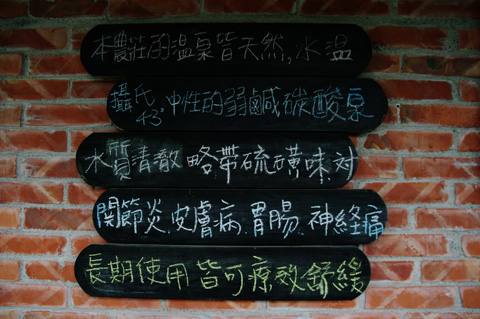 本農莊的溫泉皆天然,水溫
攝氏43°中性的弱鹹碳酸泉
水質清澈略帶硫磺味.對
關節炎.皮膚病.胃腸.神経痛
長期使用皆可療效舒緩